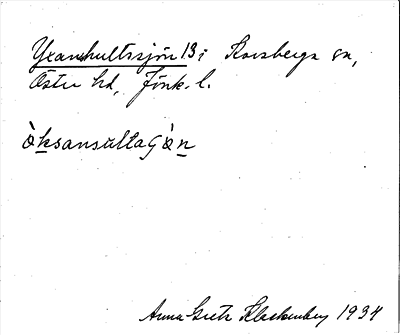 Yxanhultssjön 13 i Korsberga sn,
Östra hd, Jönk. l.
òksansultaʃòn
Anna Greta Klackenberg 1934